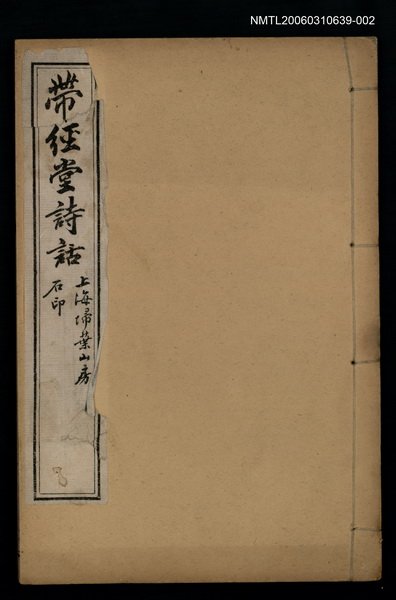 NMTL20060310639-002
帶經堂詩話
上海埽葉山房
石印